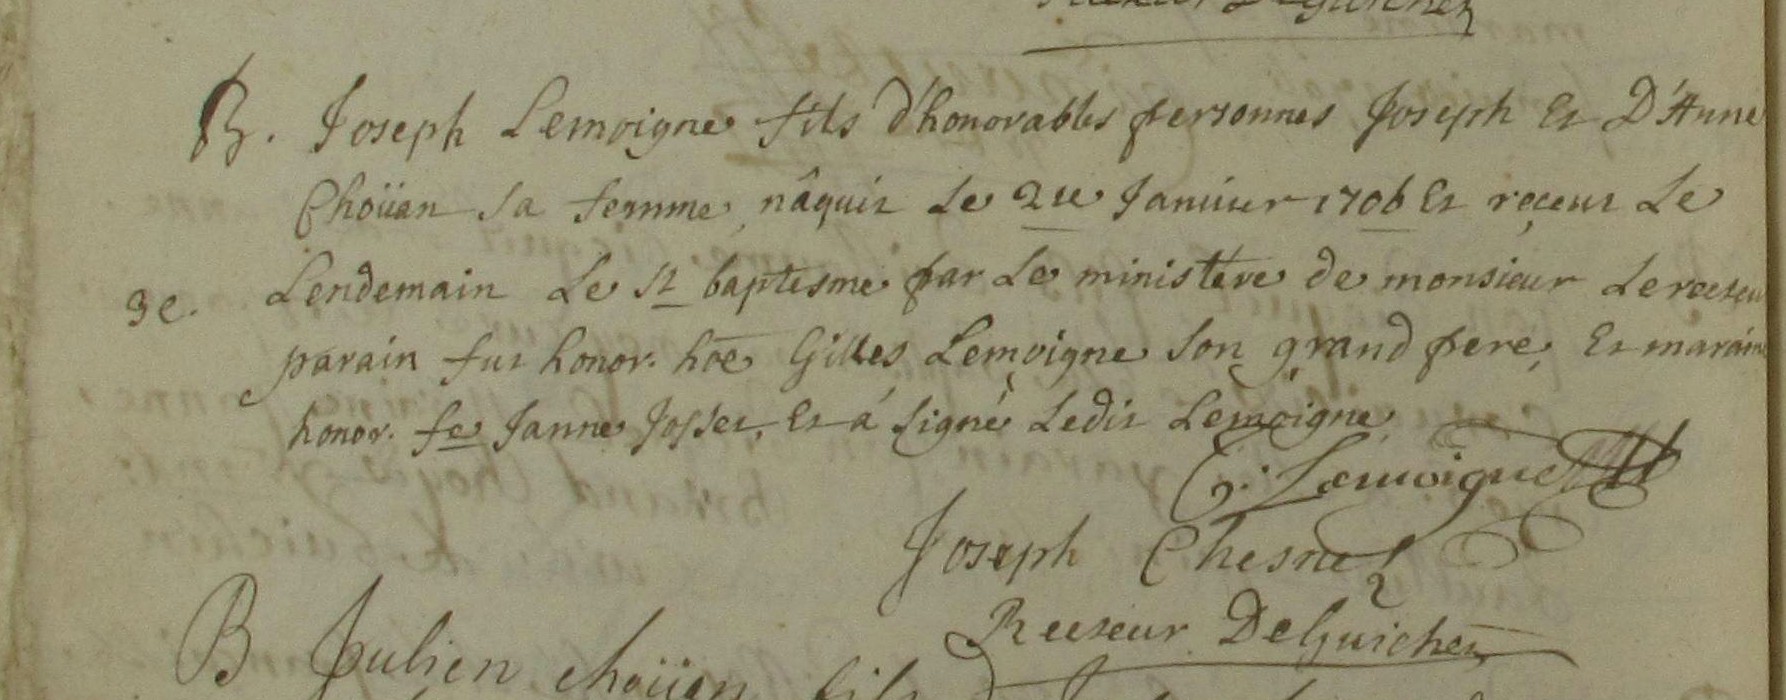 Recteur DeGuichen
B. Joseph Lemoigne fils d'honorables personnes Joseph Et D'Anne
Choüan sa femme nâquit le 2le Janvier 1706 Et receut Le
3e. Lendemain Le St baptesme par Le ministere de monsieur Le recteur
parain fut honor. hoe Gilles Lemoigne son grand pere, Et maraine
honor. fe Janne Josset, Et á signé Ledit Lemoigne
G. Lemoigne
Joseph Chesnel
Recteur DeGuichen
B Julien choüan fils